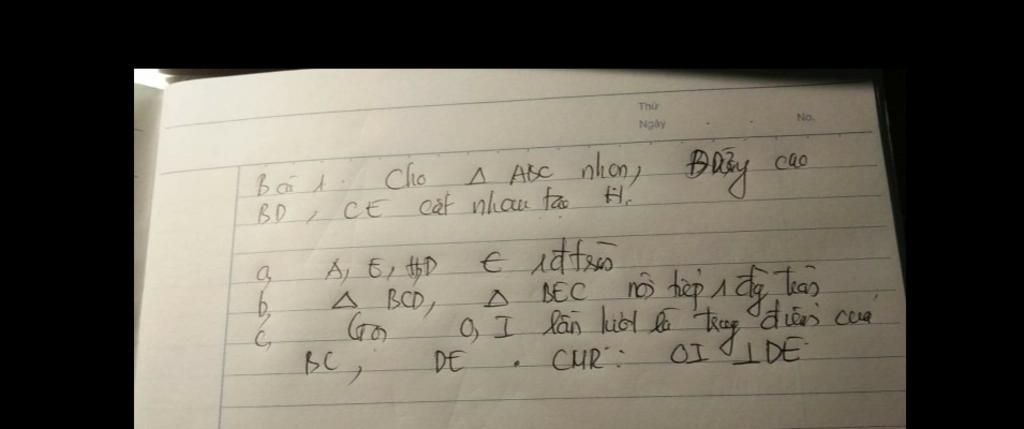 Thứ
Ngày
No.
Bài 1. Cho Δ ABC nhọn, Đường cao
BD, CE cắt nhau tạo H.
a, A, E, H, D ∈ 1 đ tròn
b, Δ BCD, Δ BEC nội tiếp 1 đg tròn
c, Gọi O, I lần lượt là trung điểm của
BC, DE. CMR: OI ⊥ DE